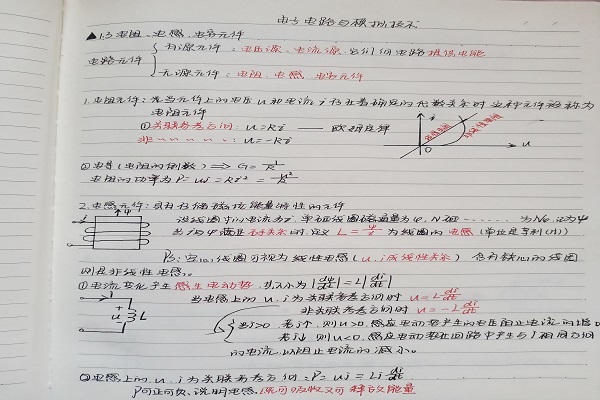 电子电路与模拟技术
▲1.3电阻、电感、电容元件
电路元件
有源元件：电压源、电流源，它们何电路提供电能
无源元件：电阻、电感、电容元件
1.电阻元件：先当元件上的电压u和电流i存在着确定的代数关系时 这种元件被称为
电阻元件
①关联参考方向：u=Ri —— 欧姆定律
非〃〃〃〃〃：u=-Ri
i
线性电阻
非线性电阻
O
u
②电导(电阻的倒数) ⟹ G=1/R
电阻的功率为P=ui=Ri²=u²/R
2.电感元件：具有存储磁场能量特性的元件
设线圈中的电流为i，单匝线圈磁通量为φ，N匝……为Nφ，记为ψ
当i与ψ满足右手关系时，定义 L=ψ/i 为线圈的电感(单位是亨利(H))
Ps：空心线圈可视为线性电感(u，i成线性关系) 含有铁心的线圈
则是非线性电感。
①电流变化产生感生电动势，其大小为|dψ/dt|=L|di/dt|
当电感上的u、i为关联参考方向时 u=L di/dt
非关联参考方向时 u=-L di/dt
i
+
u
-
L
当i>0，若i个，则u>0，感应电动势产生的电压阻止电流的增
若i↓，则u<0，感应电动势在回路中产生与i相同方向
的电流，以阻止电流的减小。
②电感上的u、i为关联参考方向：P=ui=Li di/dt
P可正可负，说明电感，既可吸收又可释放能量